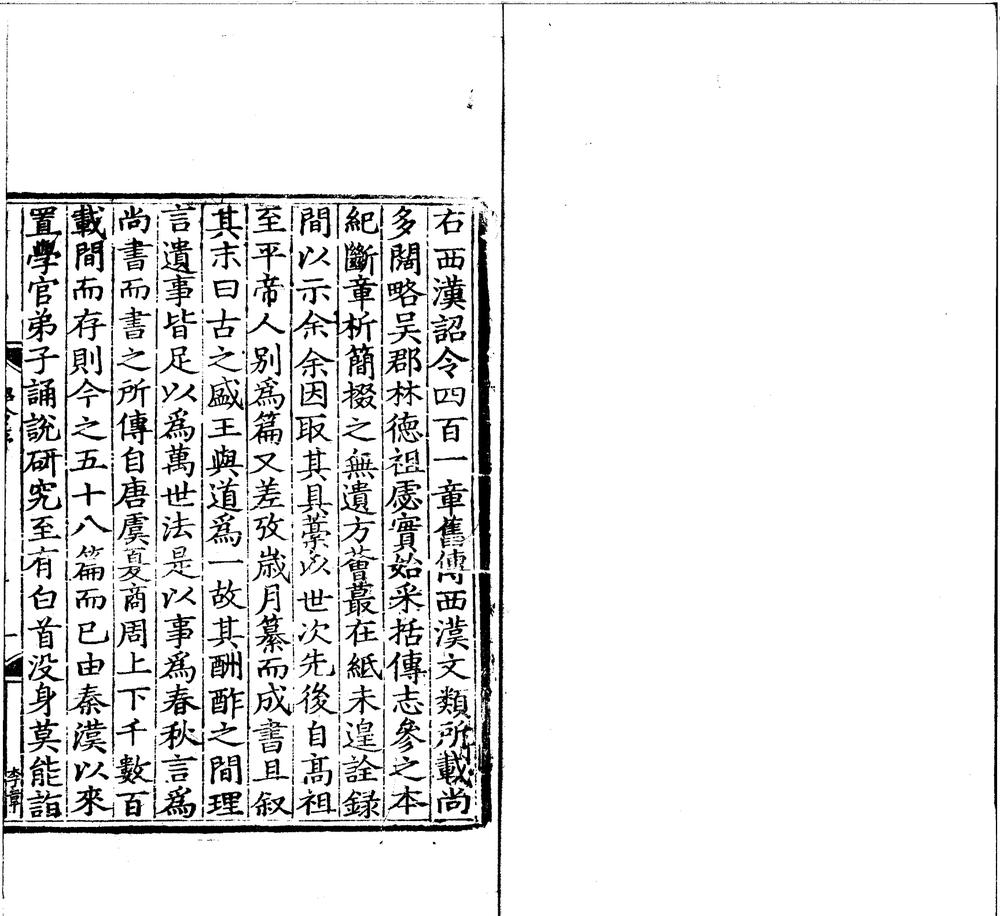 右西漢詔令四百一章舊傳西漢文類所載尚
多闊略吳郡林德祖虙實始采括傳志參之本
紀斷章析簡掇之無遺方薈蕞在紙未遑詮録
間以示余余因取其具藁以世次先後自髙祖
至平帝人别為篇又差攷嵗月纂而成書且叙
其末曰古之盛王與道為一故其酬酢之間理
言遺事皆足以為萬世法是以事為春秋言為
尚書而書之所傳自唐虞夏商周上下千數百
載間而存則今之五十八篇而已由秦漢以來
置學官弟子誦說研究至有白首没身莫能詣
一
李韋